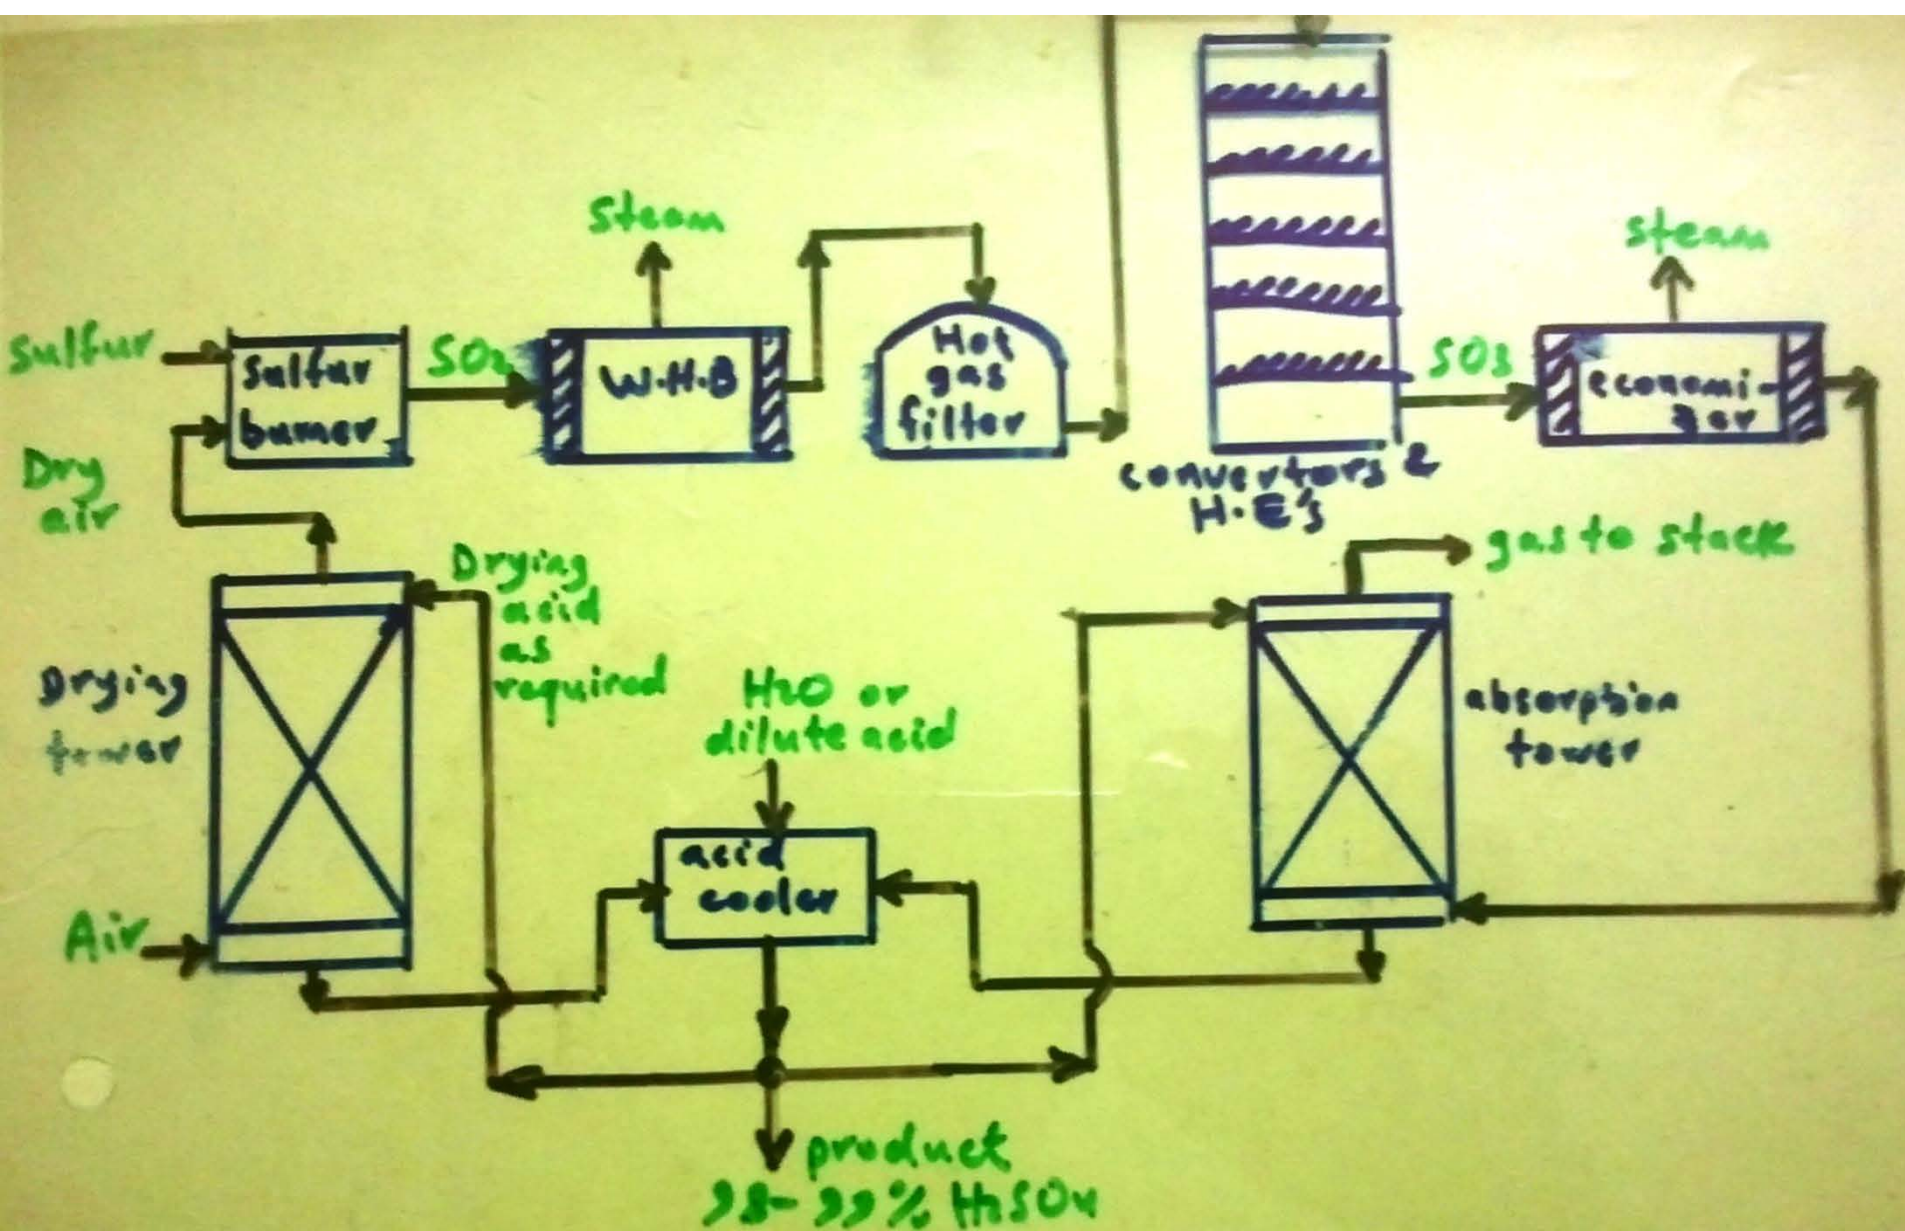 steam
steam
Sulfur
Sulfur
burner
SO2
W.H.B
Hot
gas
filter
SO3
economi-
zer
Dry
air
convertors &
H.E's
gas to stack
Drying
acid
as
required
Drying
tower
H2O or
dilute acid
absorption
tower
acid
cooler
Air
product
98-99% H2SO4